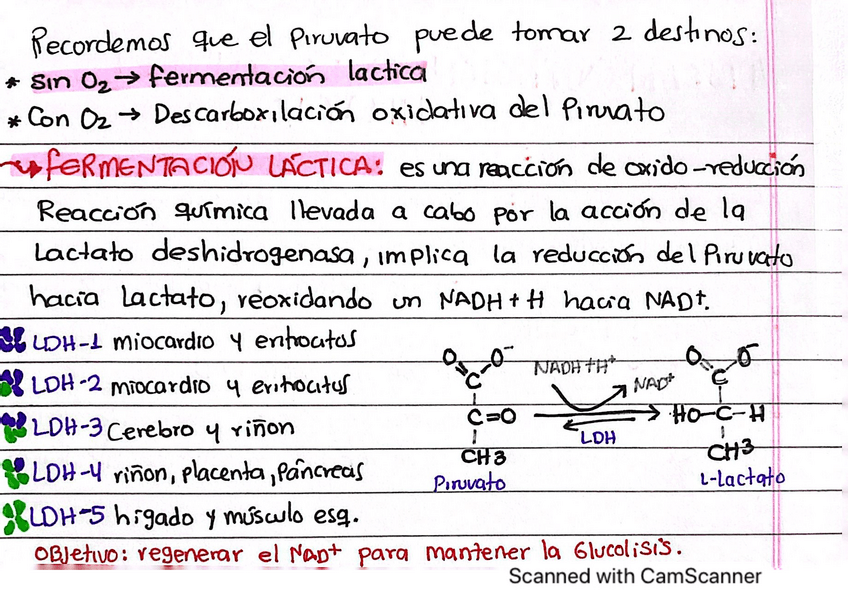 Recordemos que el Piruvato puede tomar 2 destinos:
* sin O₂ → fermentación lactica
* Con O₂ → Descarboxilación oxidativa del Piruvato
↪ FERMENTACIÓN LÁCTICA: es una reacción de oxido-reducción
Reacción química llevada a cabo por la acción de la
Lactato deshidrogenasa, implica la reducción del Piruvato
hacia Lactato, reoxidando un NADH + H hacia NAD⁺.
LDH-1 miocardio y eritrocitos
LDH-2 miocardio y eritrocitos
LDH-3 Cerebro y riñon
LDH-4 riñon, placenta, páncreas
LDH-5 higado y músculo esq.
O O⁻
C
C=O
CH3
Piruvato
NADH+H⁺
NAD⁺
LDH
O O⁻
C
HO-C-H
CH3
L-Lactato
Objetivo: regenerar el NAD⁺ para mantener la Glucolisis.
Scanned with CamScanner